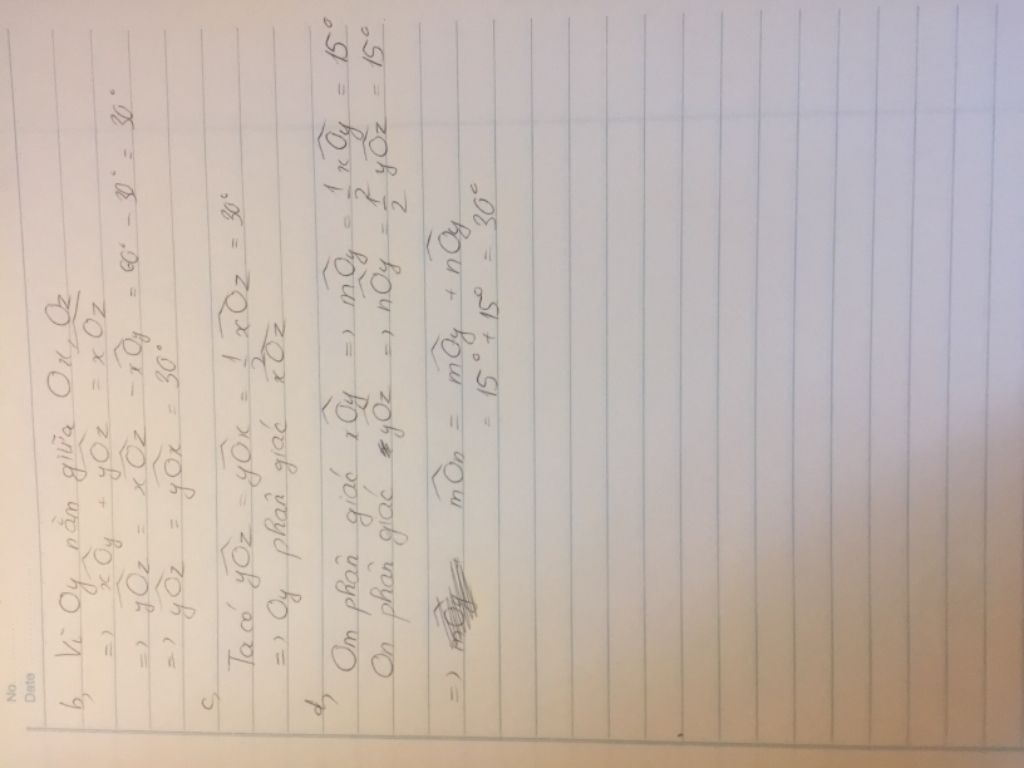 No.
Date
b, Vì Oy nằm giữa Ox, Oz
=> xÔy + yÔz = xÔz
=> yÔz = xÔz - xÔy = 60° - 30° = 30°
=> yÔz = yÔx = 30°
c,
Ta có yÔz = yÔx = 1/2 xÔz = 30°
=> Oy phân giác xÔz
d,
Om phân giác xÔy => mÔy = 1/2 xÔy = 15°
On phân giác yÔz => nÔy = 1/2 yÔz = 15°
=> mÔn = mÔy + nÔy
= 15° + 15° = 30°